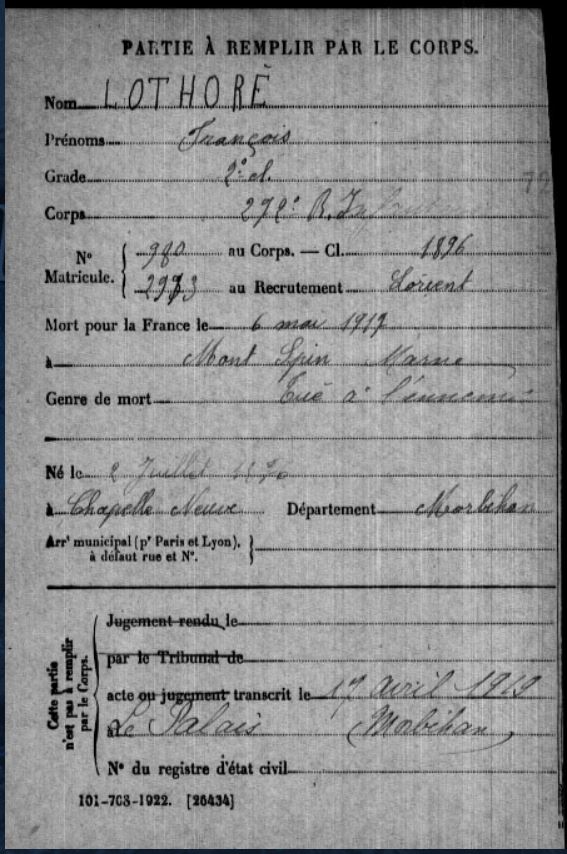 PARTIE À REMPLIR PAR LE CORPS.
Nom LOTHORÉ
Prénoms François
Grade 2e cl.
Corps 272e R. Infanterie
N° Matricule. 980 au Corps. — Cl. 1896
2973 au Recrutement Lorient
Mort pour la France le 6 mai 1917
à Mont Spin Marne
Genre de mort Tué à l'ennemi
Né le 2 Juillet
à Chapelle Neuve Département Morbihan
Arrt municipal (pr Paris et Lyon),
à défaut rue et N°.
Cette partie n'est pas à remplir par le Corps.
Jugement rendu le
par le Tribunal de
acte ou jugement transcrit le 17 avril 1919
à Le Palais Morbihan
N° du registre d'état civil
101-708-1922. [26434]